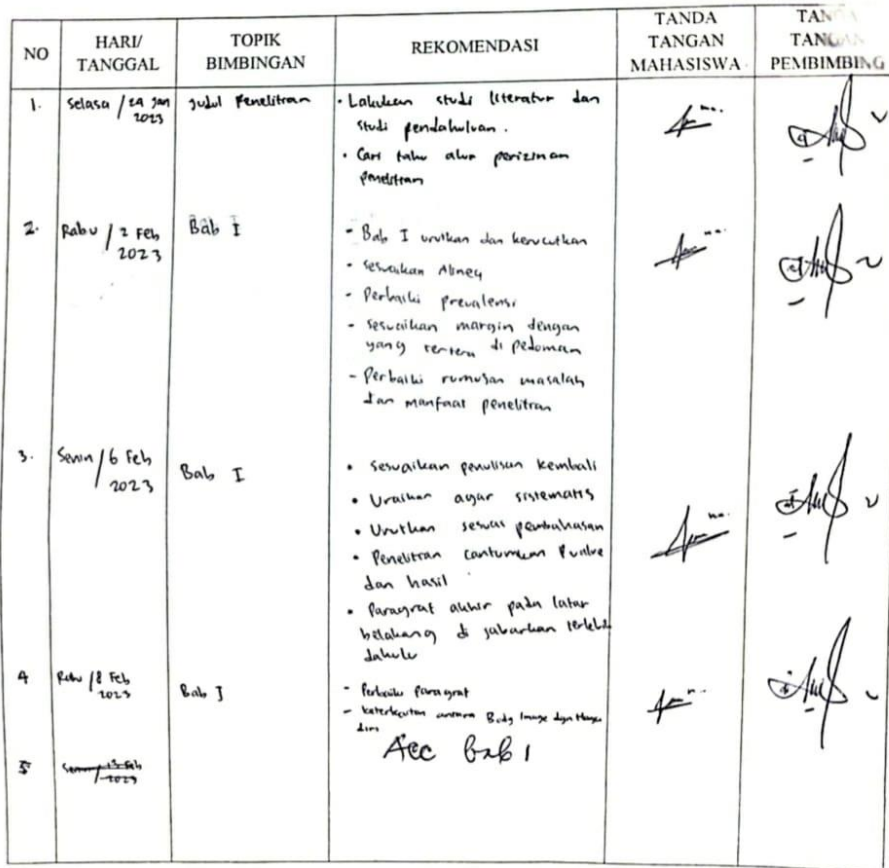 NO
HARI/
TANGGAL
TOPIK
BIMBINGAN
REKOMENDASI
TANDA
TANGAN
MAHASISWA
TAN
TANGAN
PEMBIMBING
1.
Selasa / 24 Jan
2023
Judul Penelitian
• Lakukan studi literatur dan
studi pendahuluan.
• Cari tahu alur perizinan
penelitian
2.
Rabu / 2 Feb
2023
Bab I
- Bab I urutkan dan kerucutkan
- Sesuaikan
- Perbaiki prevalensi
- Sesuaikan margin dengan
yang tertera di pedoman
- Perbaiki rumusan masalah
dan manfaat penelitian
3.
Senin / 6 Feb
2023
Bab I
• Sesuaikan penulisan kembali
• Uraikan agar sistematis
• Urutkan sesuai pembahasan
• Penelitian cantumkan Pvalue
dan hasil
• Paragraf akhir pada latar
belakang di jabarkan terlebih
dahulu
4
Rabu / 8 Feb
2023
Bab I
- Perbaiki Paragraf
- keterkaitan antara Body Image dgn Harga
diri
Acc bab 1
5
Senin / 13 Feb
2023